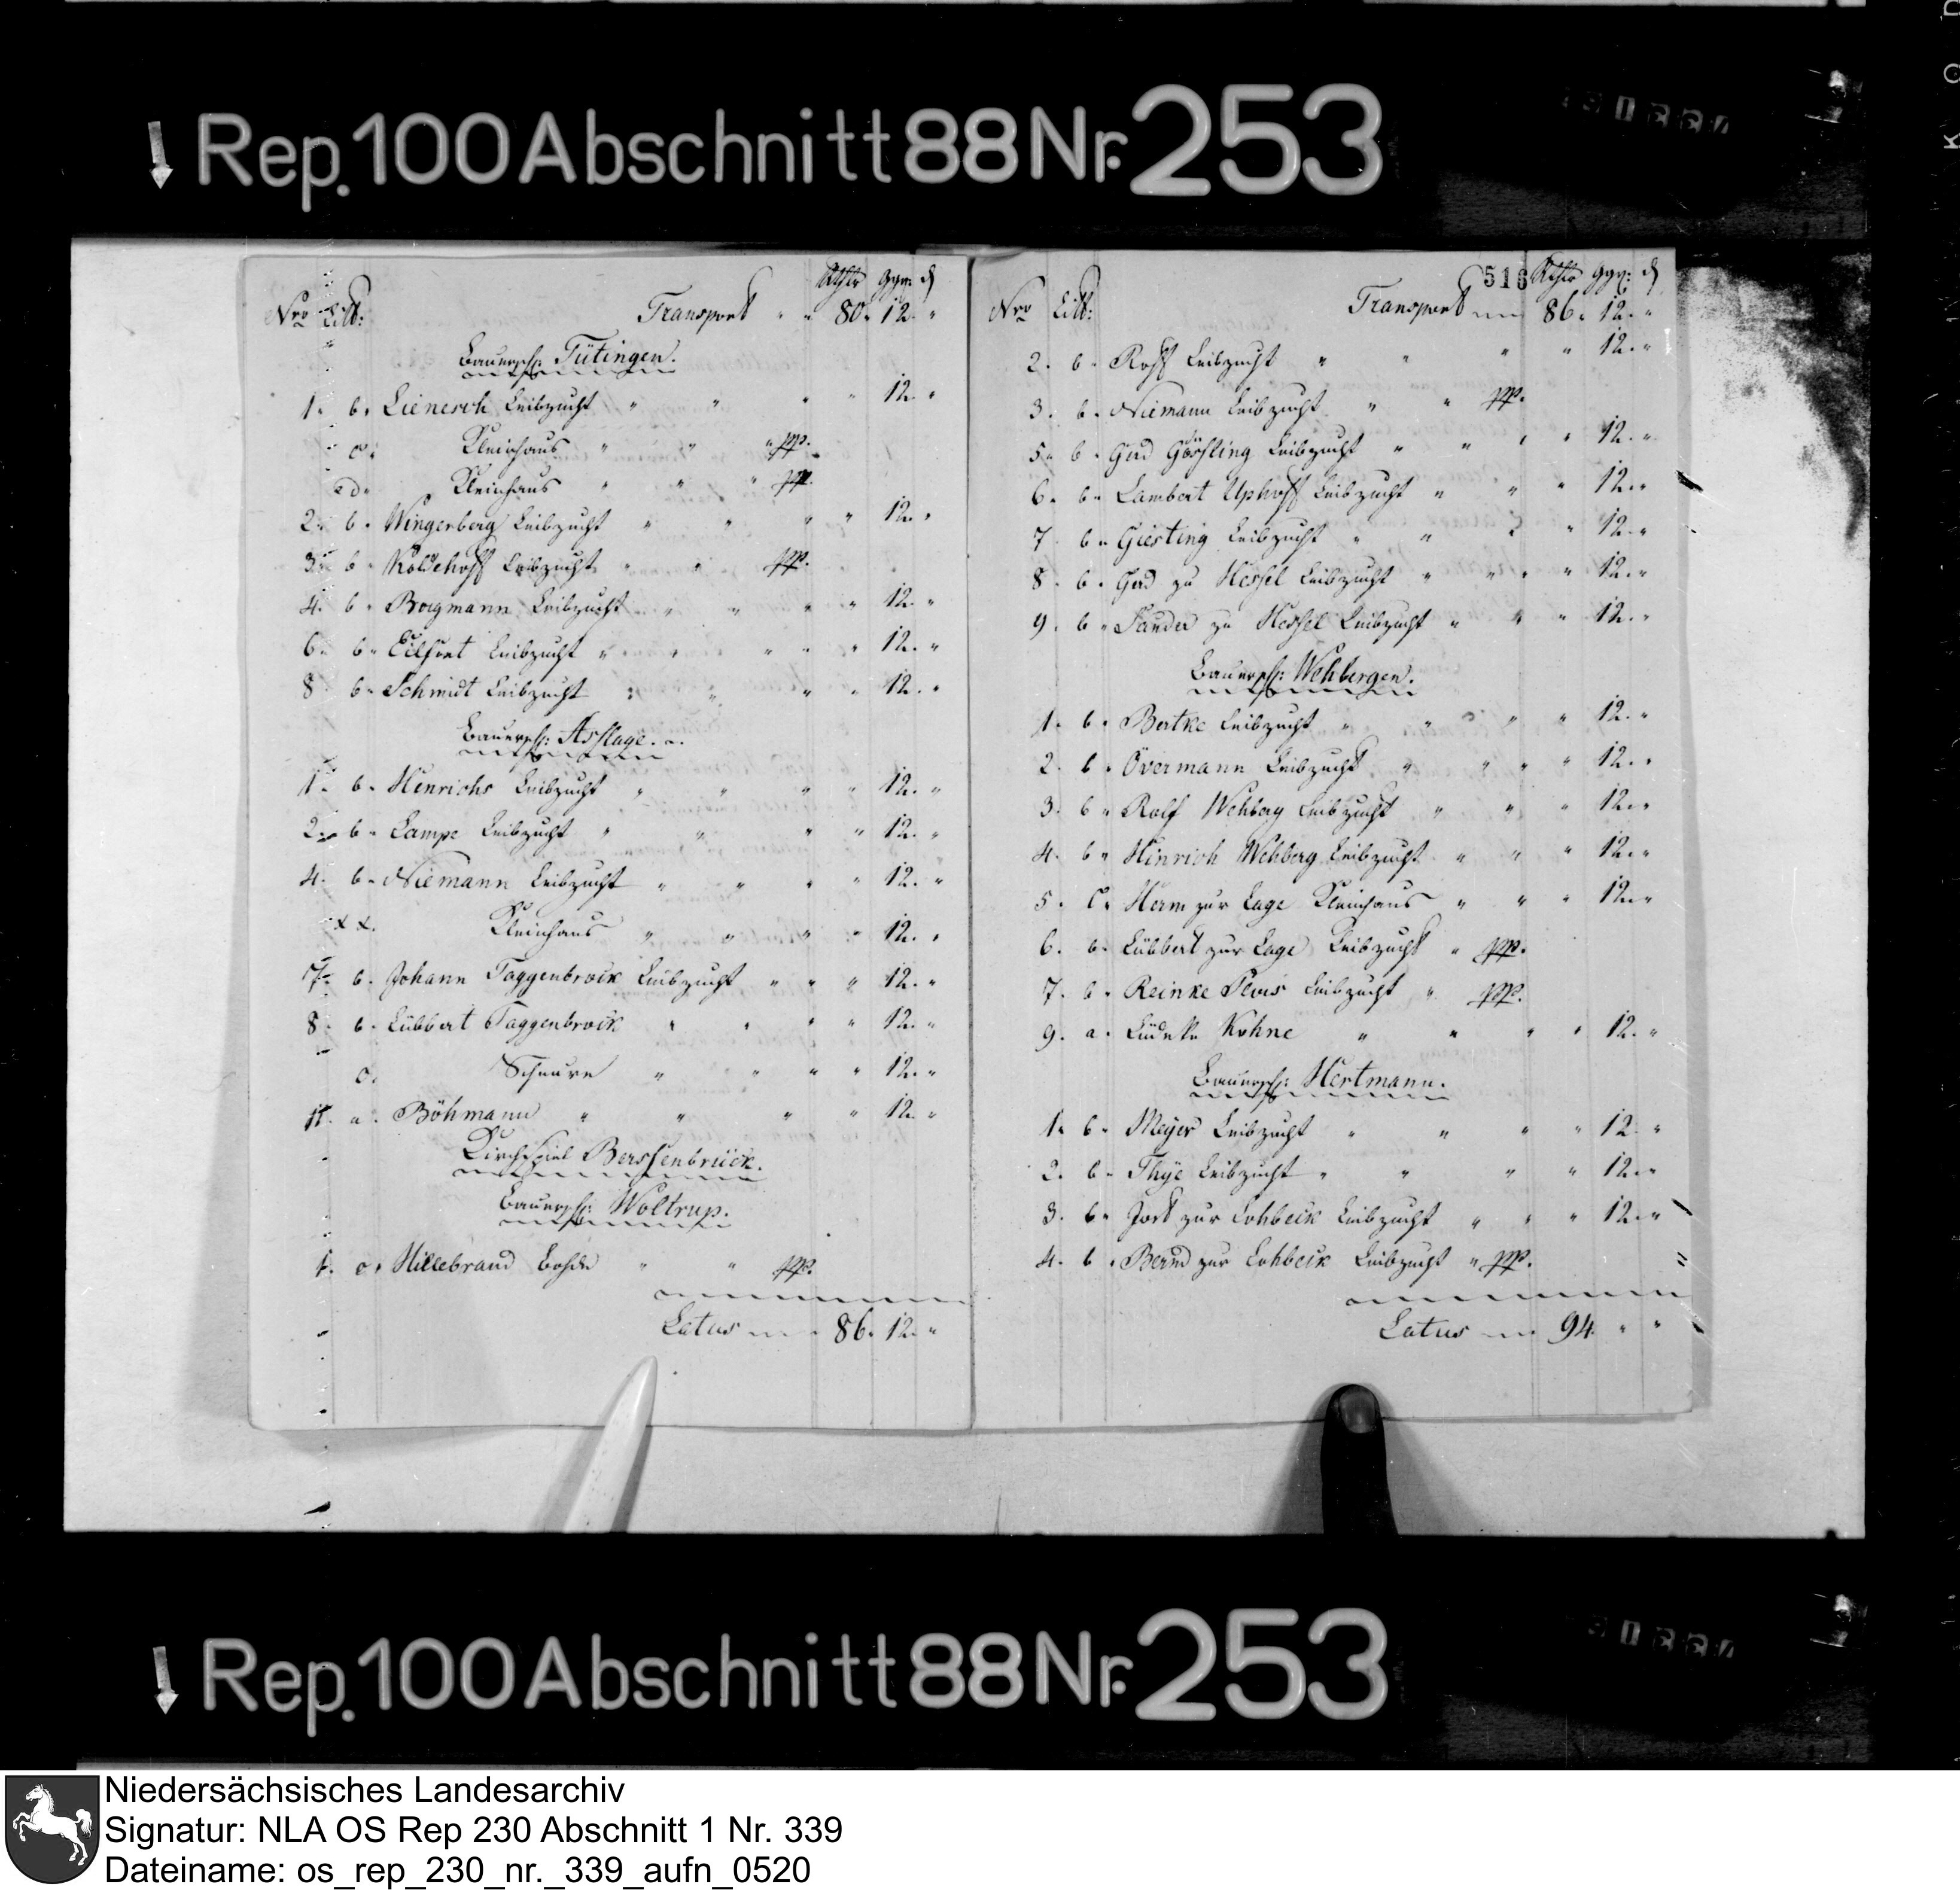 Rep. 100 Abschnitt 88 Nr. 253
Rthlr ggr: ₰
Nro Litt: Transport " " 80. 12. "
Bauersch: Tütingen.
1. b. Lienesch Leibzucht " " " " 12. "
c. Kleinhaus " " " pp.
d. Kleinhaus " " " pp.
2. b. Wingerberg Leibzucht " " " " 12. "
3. b. Koldehoff Leibzucht " " pp.
4. b. Borgmann Leibzucht " " " " 12. "
6. b. Eilfort Leibzucht " " " " 12. "
8. b. Schmidt Leibzucht " " " " 12. "
Bauersch: Asslage.
1. b. Henrichs Leibzucht " " " " 12. "
2. b. Lampe Leibzucht " " " " 12. "
4. b. Niemann Leibzucht " " " " 12. "
Kleinhaus " " " " 12. "
7. b. Johann Taggenbrock Leibzucht " " " 12. "
8. b. Lübbert Taggenbrock " " " " 12. "
c. Scheure " " " " 12. "
11. a. Böhmann " " " " 12. "
Kirchspiel Berssenbrück.
Bauersch: Woltrup.
1. c. Hillebrand " " pp.
Latus 86. 12. "
518 Rthlr ggr: ₰
Nro Litt: Transport 86. 12. "
2. b. Roff Leibzucht " " " " 12. "
3. b. Niemann Leibzucht " " pp.
5. b. Gerd Gösling Leibzucht " " " " 12. "
6. b. Lambert Uphoff Leibzucht " " " 12. "
7. b. Giesting Leibzucht " " " " 12. "
8. b. Gerd zu Hessel Leibzucht " " " " 12. "
9. b. Sander zu Hessel Leibzucht " " " 12. "
Bauersch: Wehbergen.
1. b. Bertke Leibzucht " " " " 12. "
2. b. Övermann Leibzucht " " " " 12. "
3. b. Rolf Wehberg Leibzucht " " " 12. "
4. b. Hinrich Wehberg Leibzucht " " " 12. "
5. c. Herm zur Lage Kleinhaus " " " 12. "
6. b. Lübbert zur Lage Leibzucht " pp.
7. b. Reinke Leibzucht " pp.
9. a. Lüdeke Kohne " " " " 12. "
Bauersch: Hertmann.
1. b. Meyer Leibzucht " " " " 12. "
2. b. Thye Leibzucht " " " " 12. "
3. b. Jost zur Lohbeck Leibzucht " " " 12. "
4. b. Bernd zur Lohbeck Leibzucht " pp.
Latus 94. " "
Rep. 100 Abschnitt 88 Nr. 253
Niedersächsisches Landesarchiv
Signatur: NLA OS Rep 230 Abschnitt 1 Nr. 339
Dateiname: os_rep_230_nr._339_aufn_0520